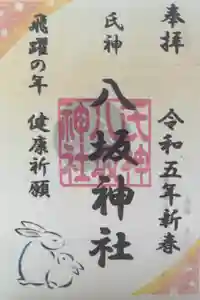 奉拝
令和五年新春
氏神
八坂神社
飛躍の年 健康祈願
氏神
八坂
神社